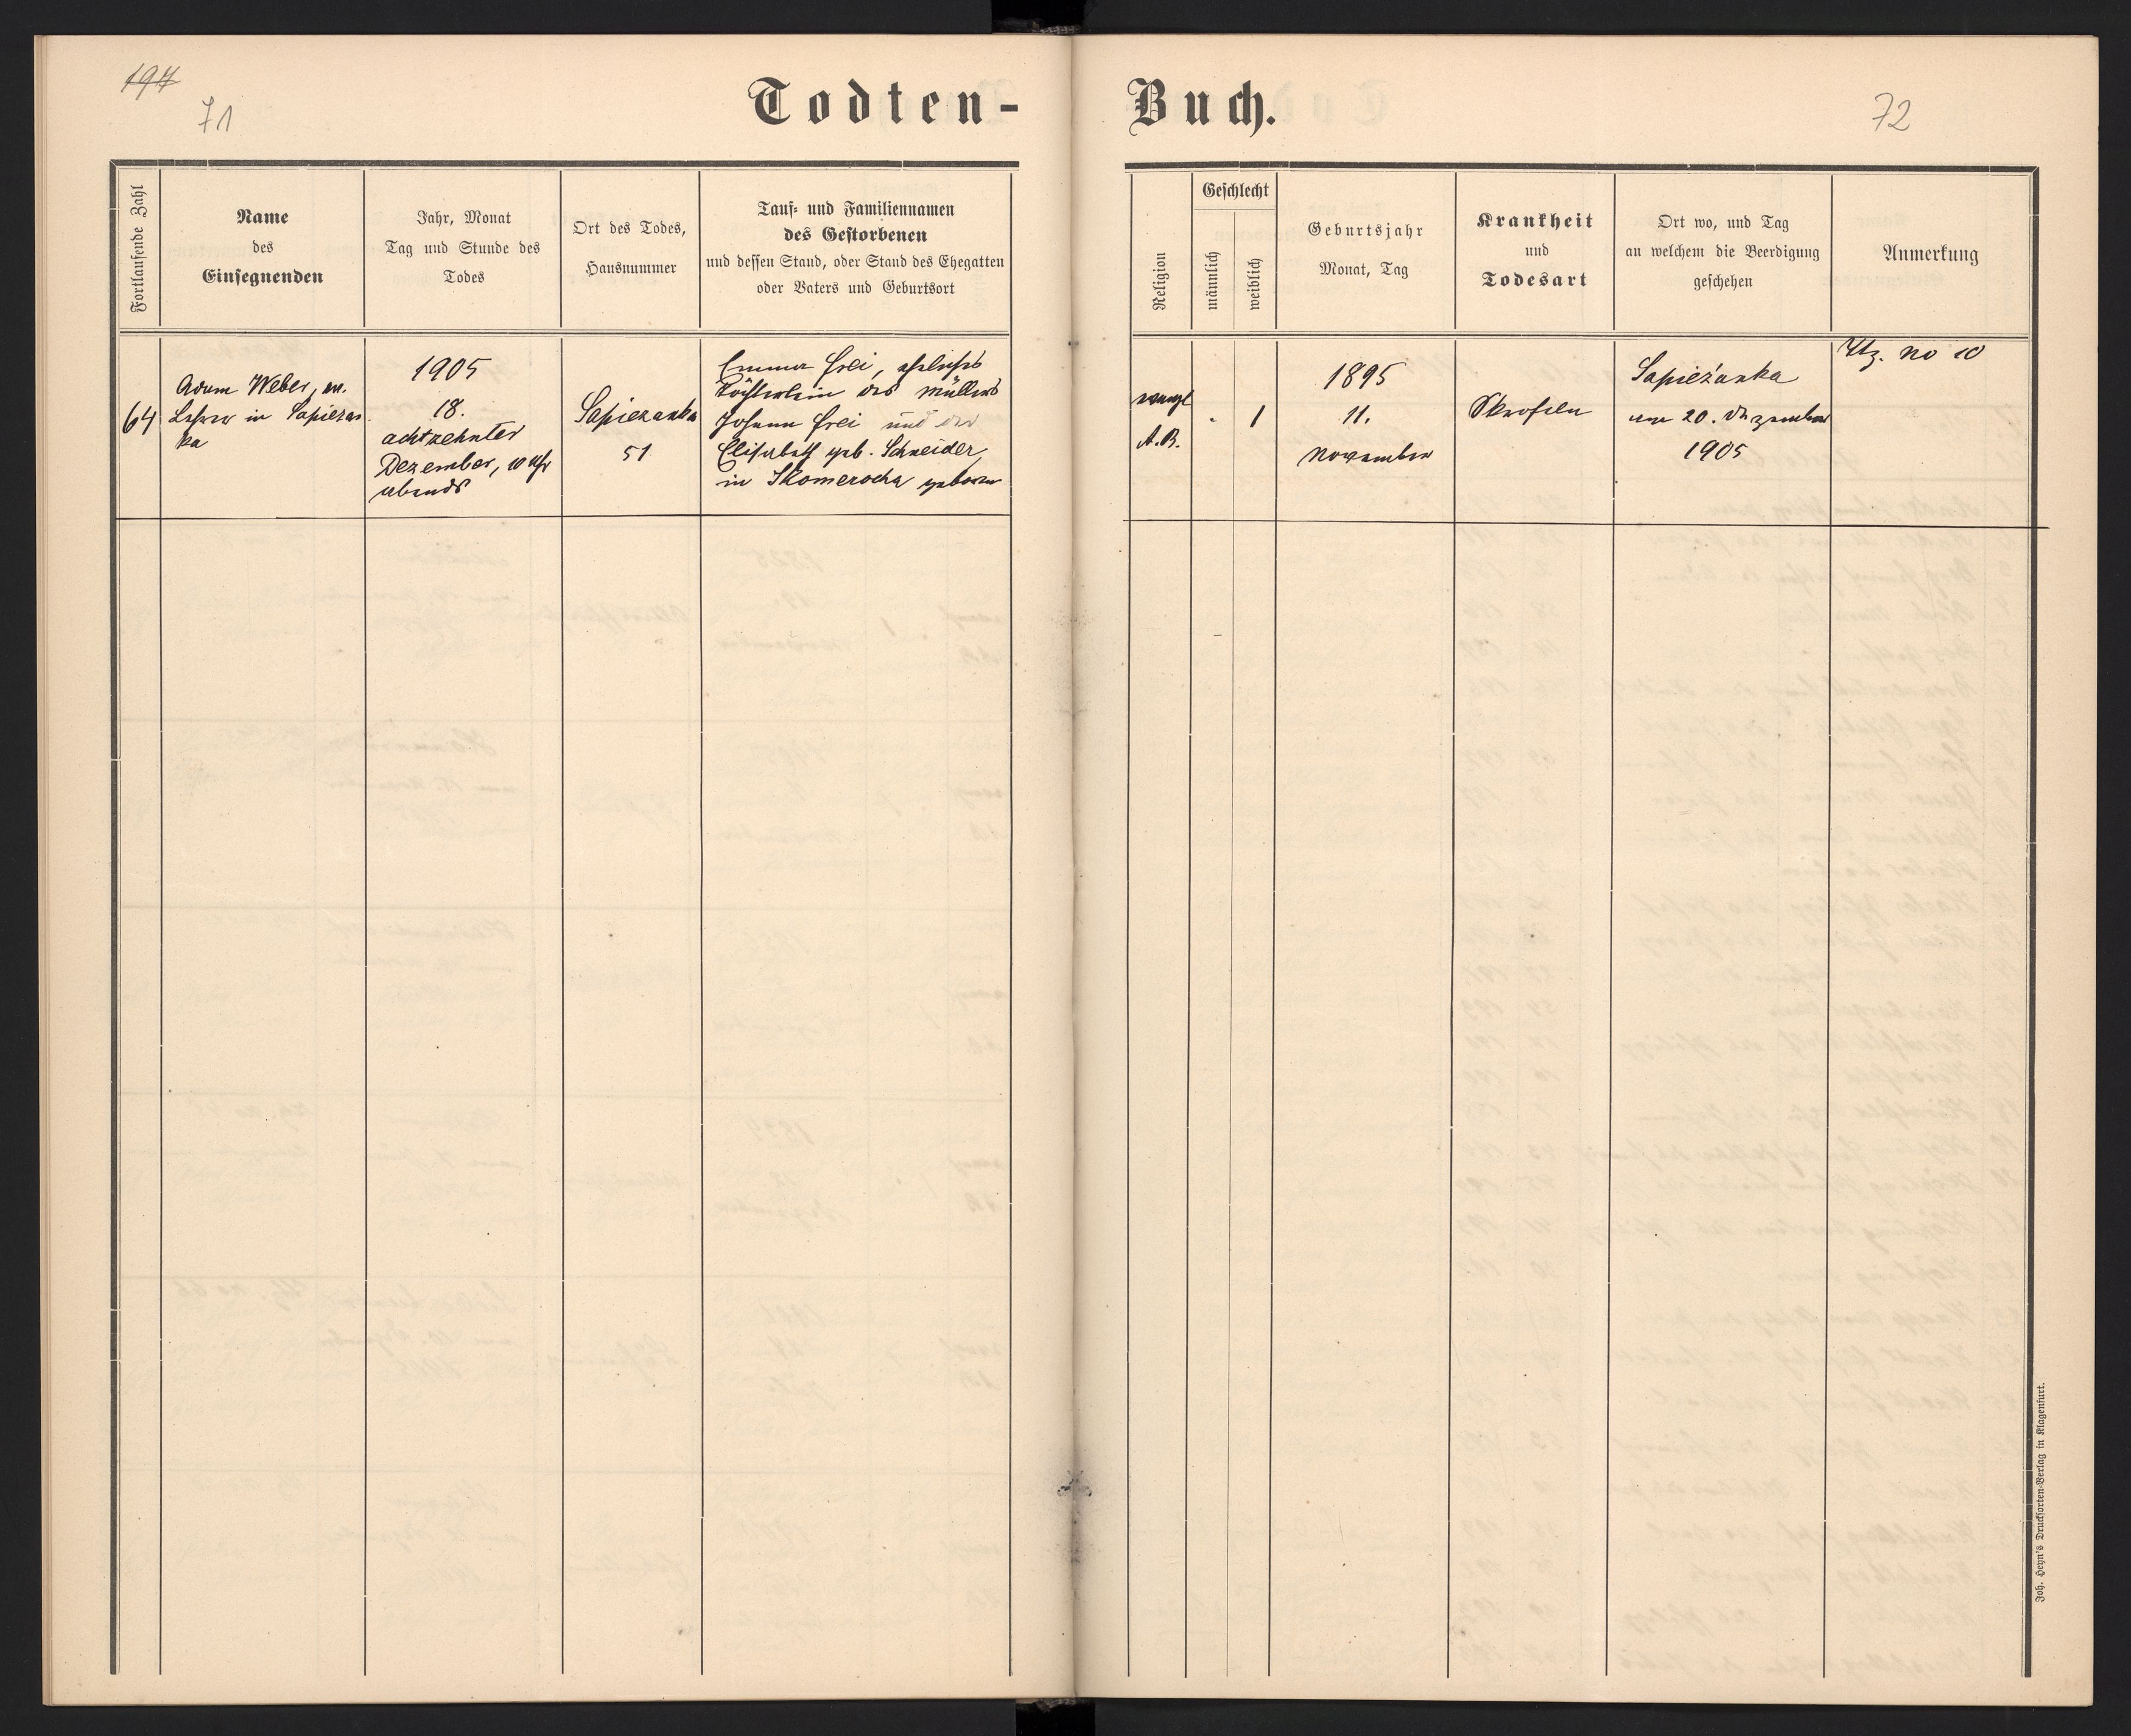 194
71
Todten-
Fortlaufende Zahl
Name
des
Einsegnenden
Jahr, Monat
Tag und Stunde des
Todes
Ort des Todes,
Hausnummer
Tauf- und Familiennamen
des Gestorbenen
und dessen Stand, oder Stand des Ehegatten
oder Vaters und Geburtsort
64
Adam Weber, m.
Lehrer in Sapiezan
ka
1905
18.
achtzehnter
Dezember, 10 Uhr
abends
Sapiezanka
51
Emma Frei, eheliches
Töchterlein des Müllers
Johann Frei und der
Elisabeth geb. Schneider,
in Skomerocha geboren
Buch.
72
Religion
Geschlecht
männlich
weiblich
Geburtsjahr
Monat, Tag
Krankheit
und
Todesart
Ort wo, und Tag
an welchem die Beerdigung
geschehen
Anmerkung
evangl
A.B.
1
1895
11.
November
Skrofeln
Sapieżanka
am 20. Dezember
1905
no 10
Joh. Heyn's Drucksorten-Verlag in Klagenfurt.